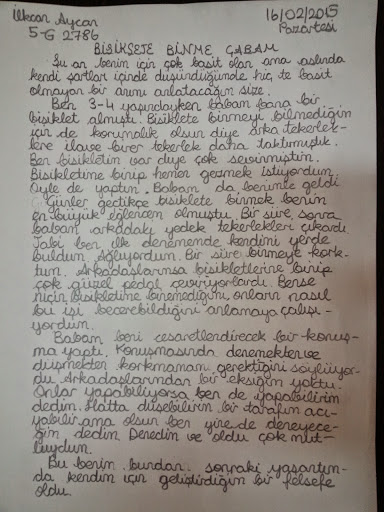 İlkcan Aycan
16/02/2015
5-G 2786
Pazartesi
BİSİKLETE BİNME ÇABAM
Şu an benim için çok basit olan ama aslında
kendi şartları içinde düşündüğümde hiç te basit
olmayan bir anımı anlatacağım size.
Ben 3-4 yaşındayken babam bana bir
bisiklet almıştı. Bisiklete binmeyi bilmediğim
için de korumalık olsun diye arka tekerlek-
lere ilave birer tekerlek daha taktırmıştık.
Ben bisikletim var diye çok sevinmiştim.
Bisikletime binip hemen gezmek istiyordum.
Öyle de yaptım. Babam da benimle geldi.
Günler geçtikçe bisiklete binmek benim
en büyük eğlencem olmuştu. Bir süre sonra
babam arkadaki yedek tekerlekleri çıkardı.
Tabi ben ilk denememde kendimi yerde
buldum. Ağlıyordum. Bir süre binmeye kork-
tum. Arkadaşlarımsa bisikletlerine binip
çok güzel pedal çeviriyorlardı. Bense
niçin bisikletime binemediğimi, onların nasıl
bu işi becerebildiğini anlamaya çalışı-
yordum.
Babam beni cesaretlendirecek bir konuş-
ma yaptı. Konuşmasında denemekten ve
düşmekten korkmamam gerektiğini söylüyor-
du. Arkadaşlarımdan bir eksiğim yoktu.
Onlar yapabiliyorsa ben de yapabilirim
dedim. Hatta düşebilirim bir tarafım acı-
yabilir ama olsun ben yine de deneyece-
ğim dedim. Denedim ve oldu çok mut-
luydum.
Bu benim bundan sonraki yaşantım-
da kendim için geliştirdiğim bir felsefe
oldu.